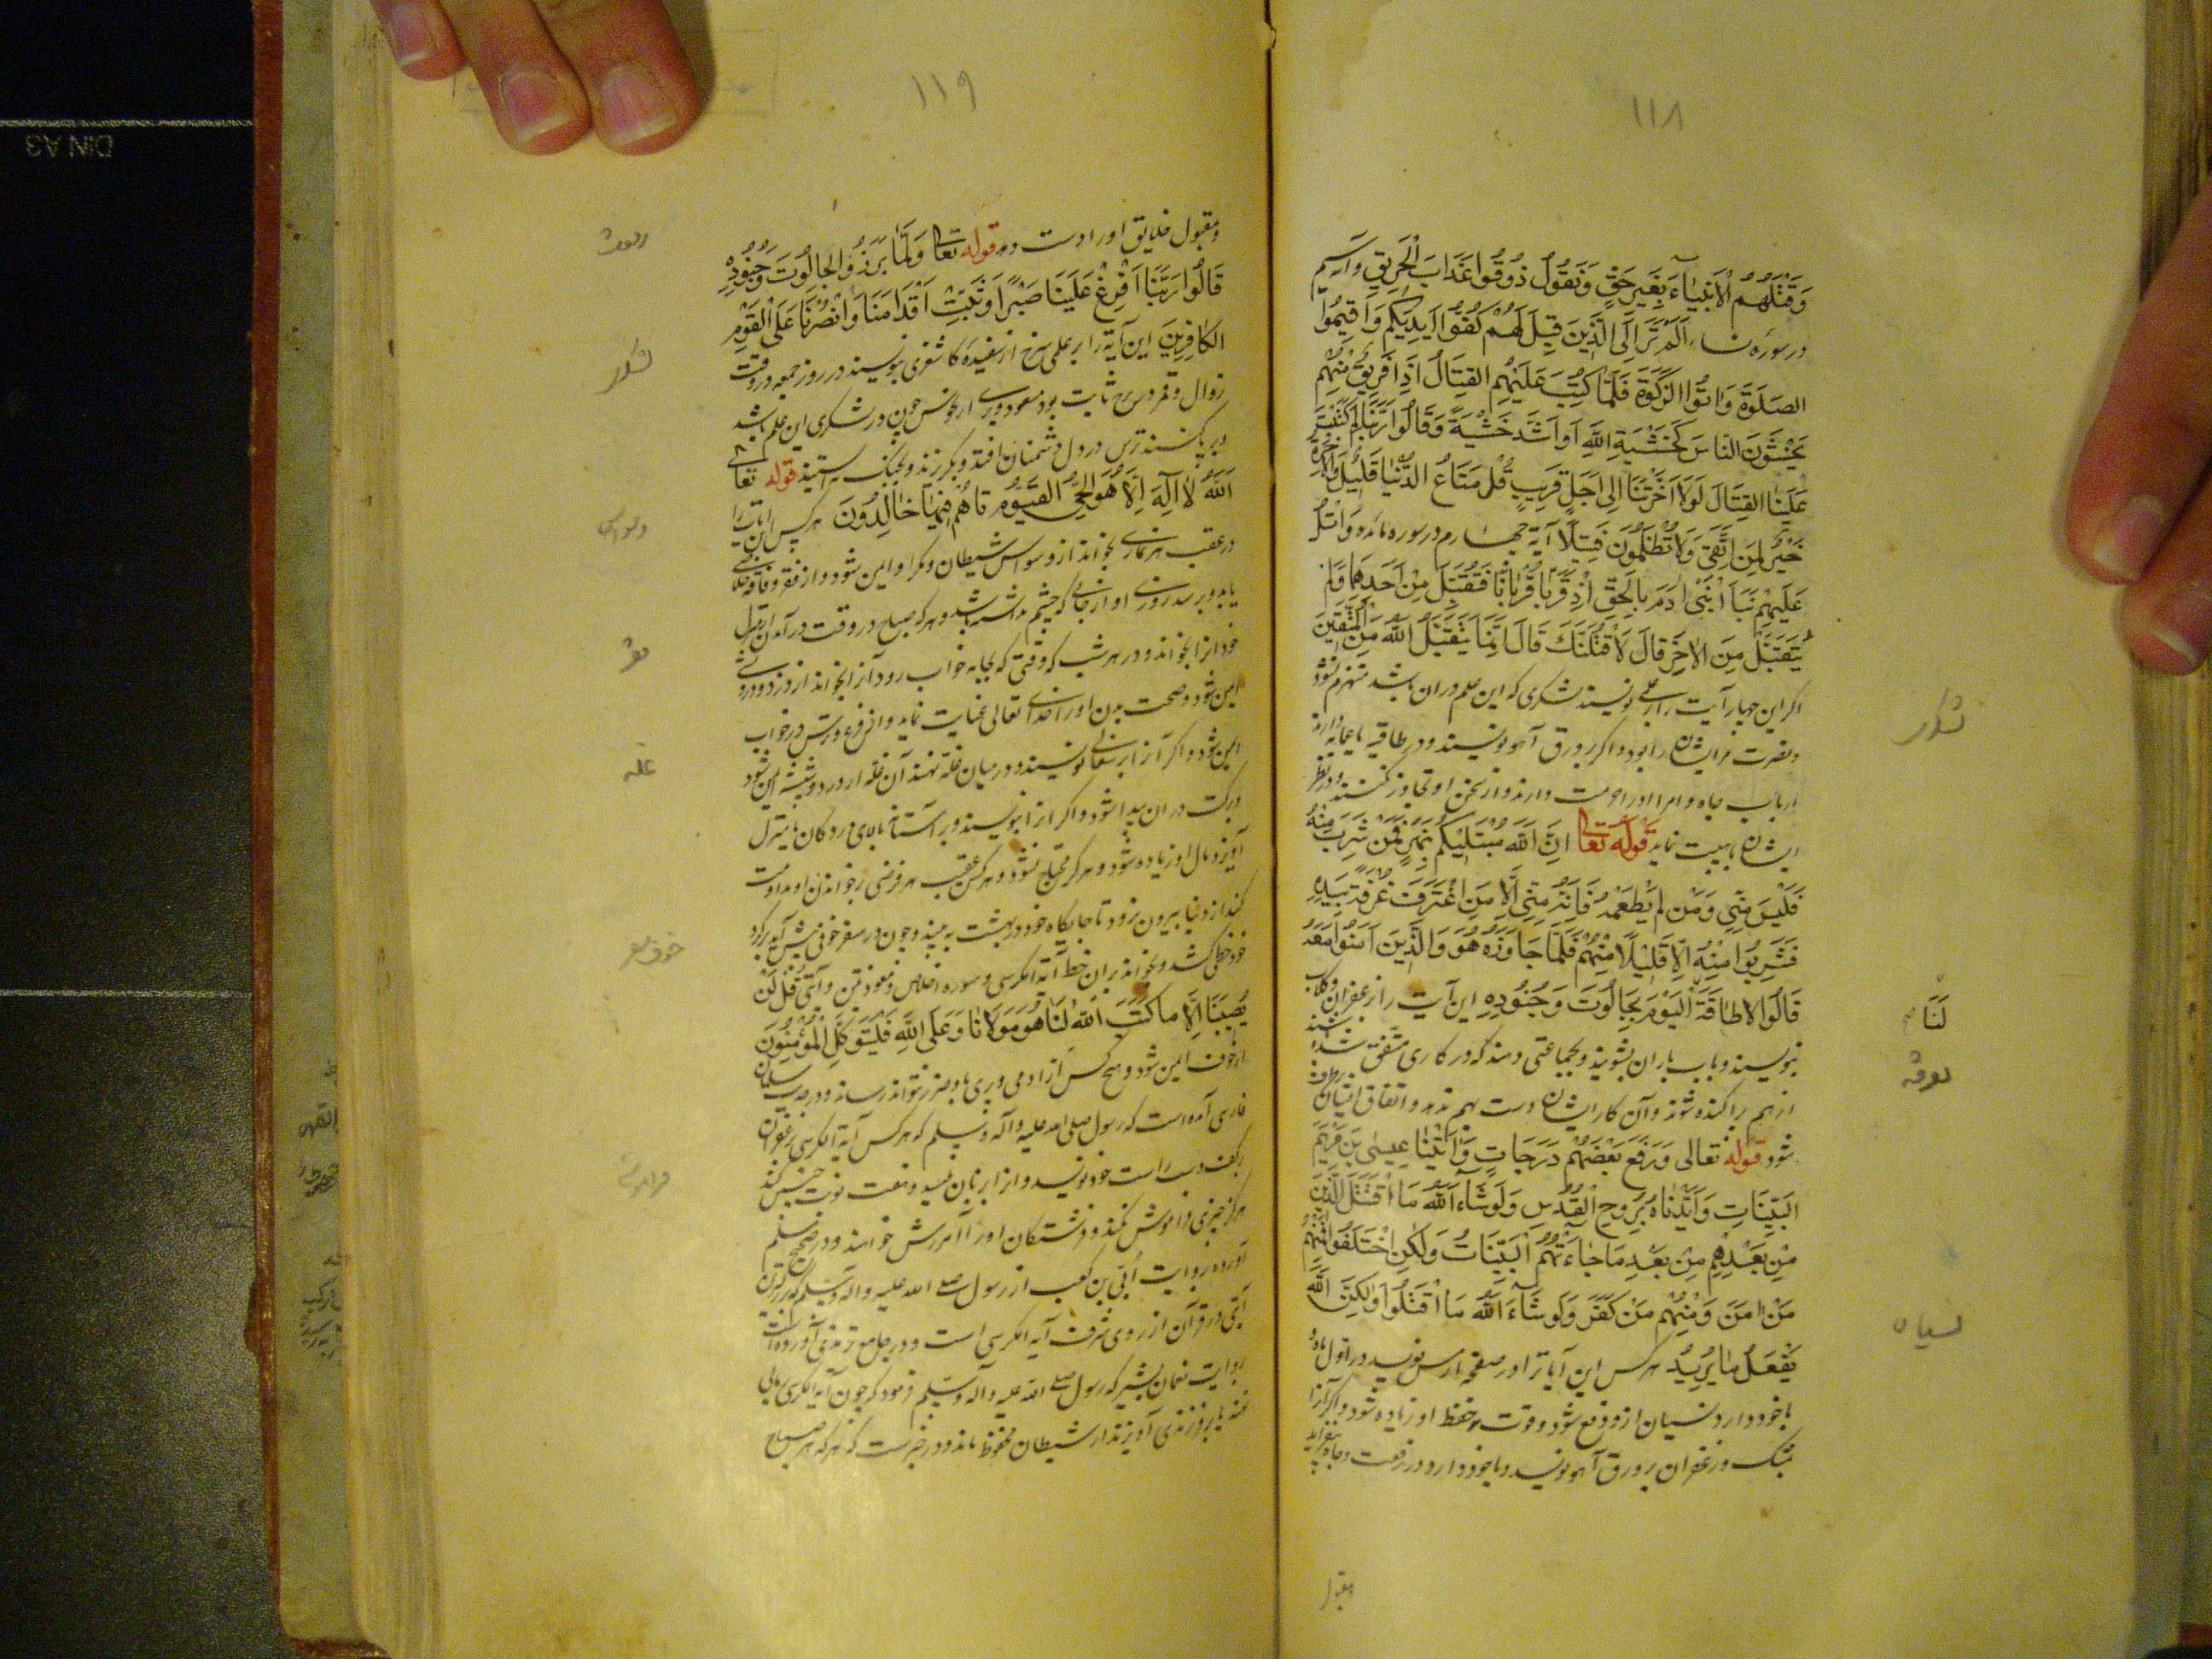 ۱۱۸
وَقَتْلَهُمُ الْاَنْبِيٰآءَ بِغَيْرِ حَقٍّ وَنَقُولُ ذُوقُوا عَذَابَ الْحَرِيقِ وآیه سیم
در سورۀ نساء اَلَمْ تَرَ اِلَى الَّذِينَ قِيلَ لَهُمْ كُفُّوا اَيْدِيَكُمْ وَاَقِيمُوا
الصَّلٰوةَ وَاٰتُوا الزَّكٰوةَ فَلَمَّا كُتِبَ عَلَيْهِمُ الْقِتَالُ اِذَا فَرِيقٌ مِنْهُمْ
يَخْشَوْنَ النَّاسَ كَخَشْيَةِ اللّٰهِ اَوْ اَشَدَّ خَشْيَةً وَقَالُوا رَبَّنَا لِمَ كَتَبْتَ
عَلَيْنَا الْقِتَالَ لَوْلَا اَخَّرْتَنَا اِلٰى اَجَلٍ قَرِيبٍ قُلْ مَتَاعُ الدُّنْيَا قَلِيلٌ وَالْاٰخِرَةُ
خَيْرٌ لِمَنِ اتَّقٰى وَلَا تُظْلَمُونَ فَتِيلًا آیة چهارم در سوره مائده وَاتْلُ
عَلَيْهِمْ نَبَاَ ابْنَيْ اٰدَمَ بِالْحَقِّ اِذْ قَرَّبَا قُرْبَانًا فَتُقُبِّلَ مِنْ اَحَدِهِمَا وَلَمْ
يُتَقَبَّلْ مِنَ الْاٰخَرِ قَالَ لَاَقْتُلَنَّكَ قَالَ اِنَّمَا يَتَقَبَّلُ اللّٰهُ مِنَ الْمُتَّقِينَ
اکر این چهار آیت را بر علمی نویسند لشکری که این علم در ان باشد منهزم نشود
ونصرت مر ایشان را بود واکر بر ورق آهو نویسند ودر طاقیه یا عمامه دارند
ارباب جاه وامرا اورا حرمت دارند واز سخن او تجاوز نکنند ودر نظر
ایشان با هیبت نماید قوله تعا اِنَّ اللّٰهَ مُبْتَلِيكُمْ بِنَهَرٍ فَمَنْ شَرِبَ مِنْهُ
فَلَيْسَ مِنِّي وَمَنْ لَمْ يَطْعَمْهُ فَاِنَّهُ مِنِّي اِلَّا مَنِ اغْتَرَفَ غُرْفَةً بِيَدِهِ
فَشَرِبُوا مِنْهُ اِلَّا قَلِيلًا مِنْهُمْ فَلَمَّا جَاوَزَهُ هُوَ وَالَّذِينَ اٰمَنُوا مَعَهُ
قَالُوا لَا طَاقَةَ الْيَوْمَ بِجَالُوتَ وَجُنُودِهِ این آیت را بزعفران وکلاب
بنویسند وباب باران بشویند وبجماعتی دهند که در کاری متفق شده باشند
از هم پراکنده شوند وآن کار ایشان دست بهم ندهد واتفاق ایشان
شود قوله تعالی وَرَفَعَ بَعْضَهُمْ دَرَجَاتٍ وَاٰتَيْنَا عِيسَى بْنَ مَرْيَمَ
الْبَيِّنَاتِ وَاَيَّدْنَاهُ بِرُوحِ الْقُدُسِ وَلَوْ شَآءَ اللّٰهُ مَا اقْتَتَلَ الَّذِينَ
مِنْ بَعْدِهِمْ مِنْ بَعْدِ مَا جَاءَتْهُمُ الْبَيِّنَاتُ وَلٰكِنِ اخْتَلَفُوا فَمِنْهُمْ
مَنْ اٰمَنَ وَمِنْهُمْ مَنْ كَفَرَ وَلَوْ شَآءَ اللّٰهُ مَا اقْتَتَلُوا وَلٰكِنَّ اللّٰهَ
يَفْعَلُ مَا يُرِيدُ هر کس این آیات را در صفحه ارس نویسد در اول ماه و
با خود دارد نسیان ازو دفع شود وقوت حفظ او زیاده شود واکر آنرا
بمشک وزعفران بر ورق آهو نویسد وبا خود دارد در رفعت وجاه بیفزاید
لَنَا صح
تفرقه
نسیان
ومقبول
۱۱۹
ومقبول خلایق اورا دست دهد قوله تعا وَلَمَّا بَرَزُوا لِجَالُوتَ وَجُنُودِهِ
قَالُوا رَبَّنَا اَفْرِغْ عَلَيْنَا صَبْرًا وَثَبِّتْ اَقْدَامَنَا وَانْصُرْنَا عَلَى الْقَوْمِ
الْكَافِرِينَ این آیة را بر علمی سرخ از سفیده کاشغری بنویسند در روز جمعه در وقت
زوال وقمر در برج ثابت بود مسعود وبری از نحوس چون در لشکری این علم باشد
وبرپا کنند ترس در دل دشمنان افتد وبکریزند وبجنک نه ایستند قوله تعالی
اَللّٰهُ لَا اِلٰهَ اِلَّا هُوَ الْحَيُّ الْقَيُّومُ تا هُمْ فِيهَا خَالِدُونَ هر کس این ایات را
در عقب هر نمازی بخواند از وسواس شیطان ومکر او ایمن شود واز فقر وفاقه خلاصی
یابد وبرسد روزی او از جائی که چشم نداشته باشد وهر که صباح در وقت در آمدن از منزل
خود انرا بخواند ودر هر شب که وقتی که بجابه خواب رود آنرا بخواند از دزد ودرویشی
ایمن شود وصحت بدن اورا خدای تعالی عنایت نماید واز فزع وترس در خواب
ایمن شود واکر آنرا بر سفالی نویسند ودر میان غله نهند آن غله از دزد وشپشه ایمن شود
وبرکت در ان پیدا شود واکر انرا بنویسند وبر آستانه بالای در دکان یا منزل
آویزند مال او زیاده شود وهرکز محتاج نشود وهر کس عقیب هر فرضی بر خواندن او مداومت
کند از دنیا بیرون نرود تا جایکاه خود در بهشت به بیند وچون در سفر خوفی پیش آید بر کرد
خود خطی کشد وبخواند بران خط آیة الکرسی وسوره اخلاص ومعوذتین وآیتی قُلْ لَنْ
يُصِيبَنَا اِلَّا مَا كَتَبَ اللّٰهُ لَنَا هُوَ مَوْلَانَا وَعَلَى اللّٰهِ فَلْيَتَوَكَّلِ الْمُؤْمِنُونَ
از خوف ایمن شود وهیچ کس از ادمی وپری باو ضرر نتواند رساند ودر حدیث سلمان
فارسی آمده است که رسول صلی الله علیه وآله وسلم که هر کس آیة الکرسی بزعفران
بر کف دست راست خود نویسد وانرا بزبان بلیسد وهفت نوبت چنین کند
هرکز چیزی فراموش نکند وفرشتکان اورا آمرزش خواهند ودر صحیح مسلم
آورده بروایت اُبی بن کعب از رسول صلی الله علیه واله وسلم که بزرکترین
آیتی در قرآن از روی شرف آیة الکرسی است ودر جامع ترمذی آورده است
بروایت نعمان بشیر که رسول صلی الله علیه وآله وسلم فرمود که چون آیة الکرسی بر مالی
نهند یا بر فرزندی آویزند از شیطان محفوظ ماند ودر خبرست که هر که هر صباح
فقر
غله
خوف سفر